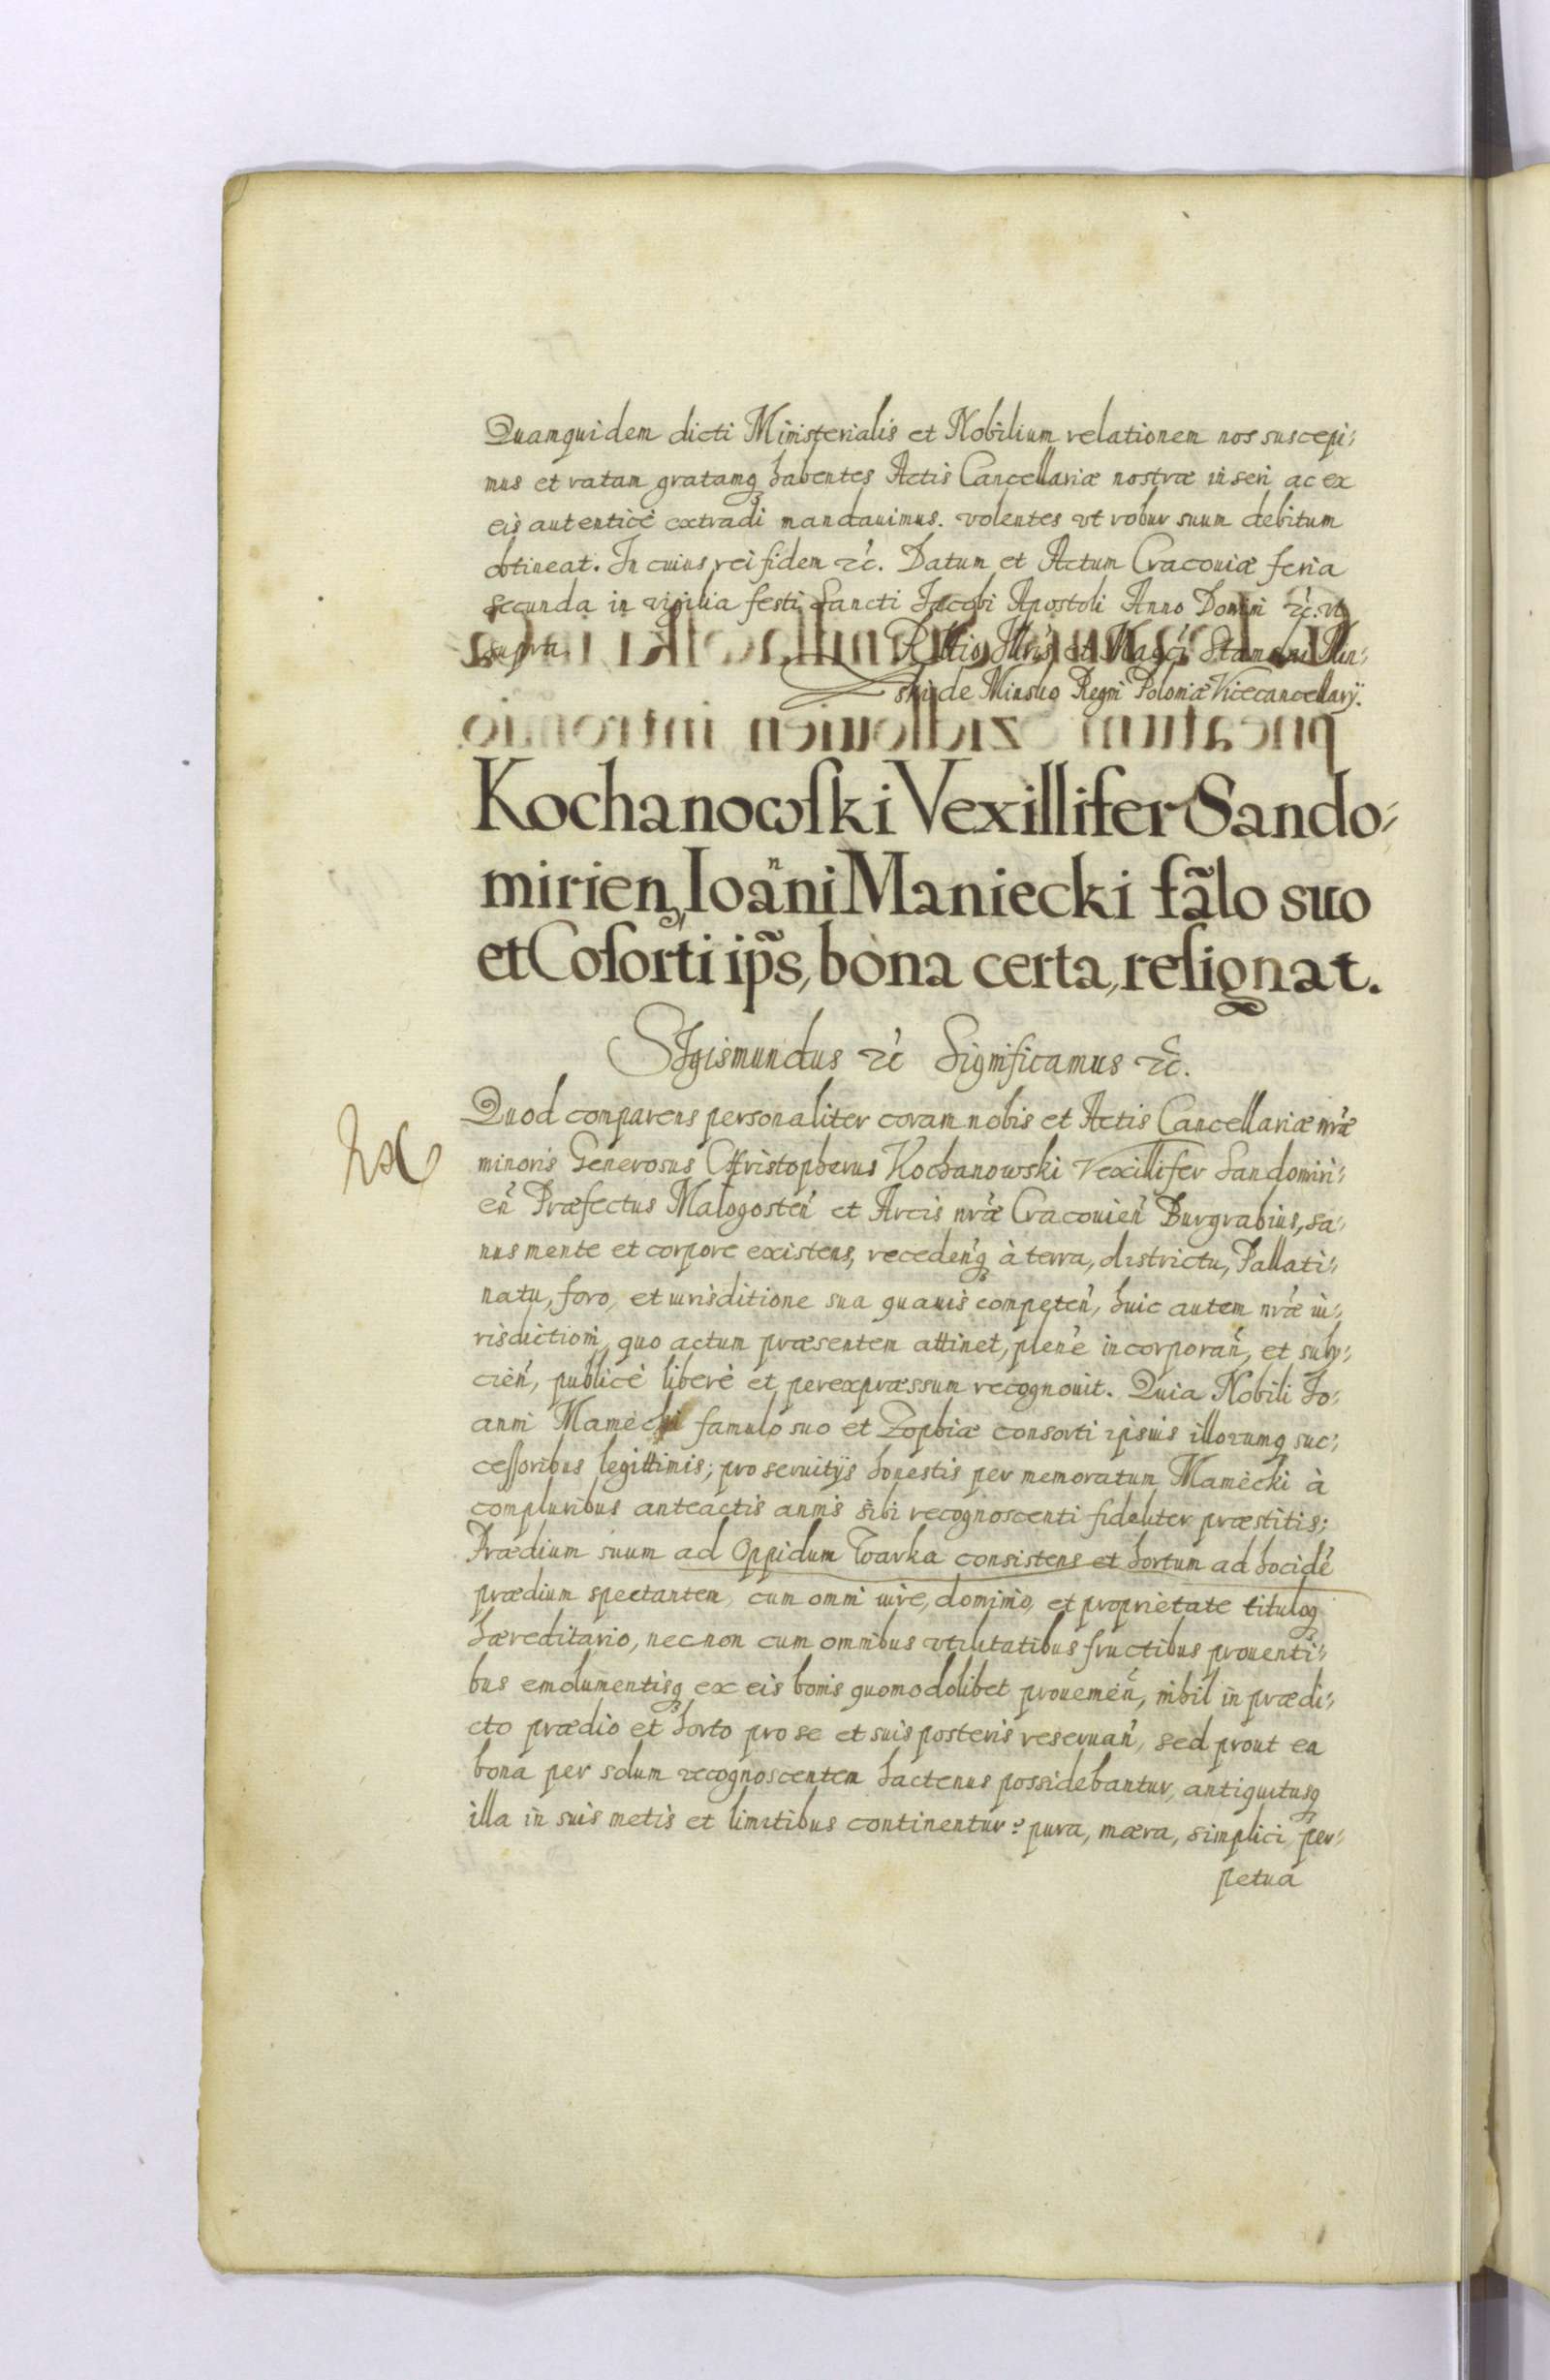 Quamquidem dicti Ministerialis et Nobilium relationem nos suscepi:
mus et ratam gratamq habentes Actis Cancellariæ nostræ inseri ac ex
eis autenticè extradi mandauimus. volentes vt robur suum debitum
obtineat. In cuius rei fidem rc̃. Datum et Actum Cracouiæ feria
secunda in vigilia festi Sancti Jacobi Apostoli Anno Domini rc̃. vt
supra.
Rltio Illris et Magci Stanislai Min:
ski de Minsko Regni Poloniæ Vicecancellarij.
Kochanowſki Vexillifer Sando:
mirien, Ioãni Maniecki fãlo suo
et Coſorti ip̃s, bona certa, reſignat.
SIgismundus rc̃ Significamus rc̃.
Quod comparens personaliter coram nobis et Actis Cancellariæ nr̃æ
minoris Generosus Christopherus Kochanowski Vexillifer Sandomiri:
eñ Præfectus Malogosteñ et Arcis nr̃æ Cracouieñ Burgrabius, sa:
nus mente et corpore existens, recedeñq à terra, districtu, Pallati:
natu, foro, et iurisditione sua quauis competeñ, huic autem nr̃æ iu:
risdictioni, quo actum præsentem attinet, plenè incorporañ, et subij:
cieñ, publicè liberè et perexpræssum recognouit. Quia Nobili Jo:
anni Maniecki famulo suo et Zophiæ consorti ipsius illorumq suc:
ceſſoribus legittimis; pro seruitijs honestis per memoratum Maniecki à
compluribus anteactis annis sibi recognoscenti fideliter præstitis;
Prædium suum ad Oppidum Warka consistens et hortum ad hocidẽ
prædium spectantem, cum omni iure, dominio, et proprietate tituloq
hæreditario, necnon cum omnibus vtilitatibus fructibus prouenti:
bus emolumentisq ex eis bonis quomodolibet prouenieñ, nihil in prædi:
cto prædio et horto pro se et suis posteris reseruañ, sed prout ea
bona per solum recognoscentem hactenus possidebantur, antiquitusq
illa in suis metis et limitibus continentur: pura, mæra, simplici, per:
petua